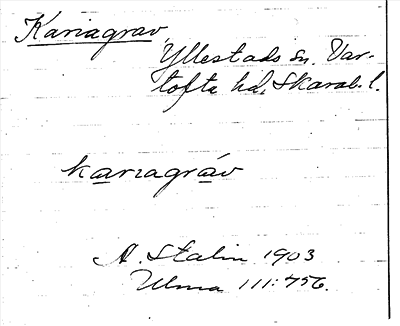 Kariagrav,
Yllestads sn. Var-
tofta hd, Skarab. l.
kariagráv
A. Stalin 1903
Ulma 111:756.